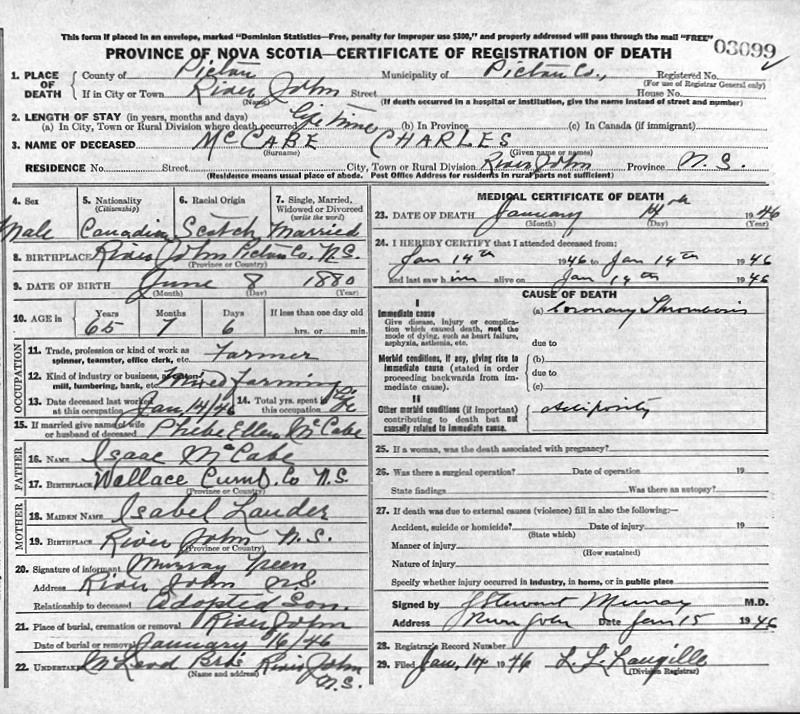 This form if placed in an envelope, marked "Dominion Statistics—Free, penalty for improper use $300," and properly addressed will pass through the mail "FREE"
PROVINCE OF NOVA SCOTIA—CERTIFICATE OF REGISTRATION OF DEATH
03099
1. PLACE OF DEATH
County of Pictou Municipality of Pictou Co., Registered No.
(For use of Registrar General only)
If in City or Town River John Street House No.
(Name) (If death occurred in a hospital or institution, give the name instead of street and number)
2. LENGTH OF STAY (in years, months and days)
(a) In City, Town or Rural Division where death occurred Life Time (b) In Province (c) In Canada (if immigrant)
3. NAME OF DECEASED McCABE CHARLES
(Surname) (Given name or names)
RESIDENCE No. Street City, Town or Rural Division River John Province N.S.
(Residence means usual place of abode. Post Office Address for residents in rural parts not sufficient)
4. Sex 5. Nationality (Citizenship) 6. Racial Origin 7. Single, Married, Widowed or Divorced (write the word)
Male Canadian Scotch Married
8. BIRTHPLACE River John Pictou Co. N.S.
(Province or Country)
9. DATE OF BIRTH June 8 1880
(Month) (Day) (Year)
10. AGE in Years Months Days If less than one day old
65 7 6 hrs. or min.
OCCUPATION
11. Trade, profession or kind of work as spinner, teamster, office clerk, etc. Farmer
12. Kind of industry or business, as cotton mill, lumbering, bank, etc. Mixed farming
13. Date deceased last worked at this occupation Jan 14/46 14. Total yrs. spent in this occupation Life
15. If married give name of wife or husband of deceased Phebe Ellen McCabe
FATHER
16. NAME Isaac McCabe
17. BIRTHPLACE Wallace Cumb. Co N.S.
(Province or Country)
MOTHER
18. MAIDEN NAME Isabel Lauder
19. BIRTHPLACE River John N.S.
(Province or Country)
20. Signature of informant Murray
Address River John N.S.
Relationship to deceased Adopted Son.
21. Place of burial, cremation or removal River John
Date of burial or removal January 16/46
22. UNDERTAKER McLeod Bros River John N.S.
(Name and address)
MEDICAL CERTIFICATE OF DEATH
23. DATE OF DEATH January 14th 1946
(Month) (Day) (Year)
24. I HEREBY CERTIFY that I attended deceased from:
Jan 14th 1946 to Jan 14th 1946
and last saw him alive on Jan 14th 1946
CAUSE OF DEATH
I
Immediate cause
Give disease, injury or complication which caused death, not the mode of dying, such as heart failure, asphyxia, asthenia, etc.
(a) Coronary Thrombosis
due to
Morbid conditions, if any, giving rise to immediate cause (stated in order proceeding backwards from immediate cause).
(b)
due to
(c)
II
Other morbid conditions (if important) contributing to death but not causally related to immediate cause.
Adiposity
25. If a woman, was the death associated with pregnancy?
26. Was there a surgical operation? Date of operation 19
State findings Was there an autopsy?
27. If death was due to external causes (violence) fill in also the following:—
Accident, suicide or homicide? Date of injury 19
(State which)
Manner of injury
(How sustained)
Nature of injury
Specify whether injury occurred in industry, in home, or in public place
Signed by J Stewart Murray M.D.
Address River John Date Jan 15 1946
28. Registrar's Record Number
29. Filed Jan, 14 1946 L. L. Langille
(Division Registrar)